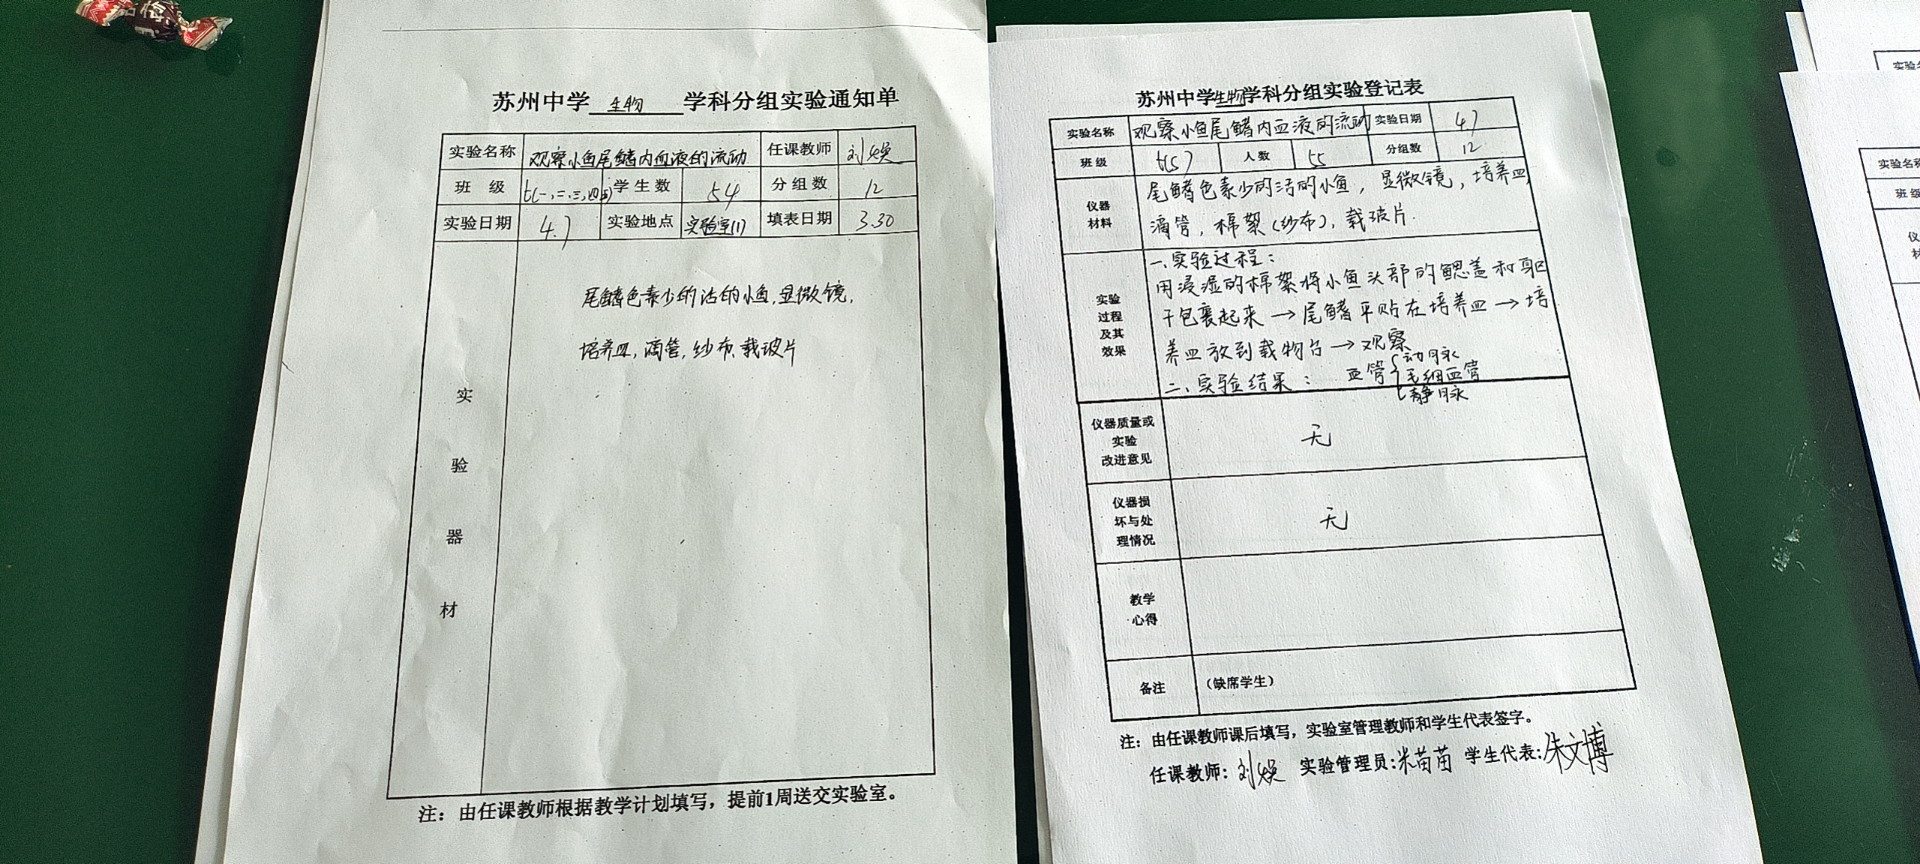 苏州中学 生物 学科分组实验通知单
实验名称 观察小鱼尾鳍内血液的流动 任课教师 刘娱
班 级 七(一,二,三,四,五) 学生数 54 分组数 12
实验日期 4.7 实验地点 实验室(1) 填表日期 3.30
实验器材
尾鳍色素少的活的小鱼,显微镜,
培养皿,滴管,纱布,载玻片
注：由任课教师根据教学计划填写，提前1周送交实验室。
苏州中学生物学科分组实验登记表
实验名称 观察小鱼尾鳍内血液的流动 实验日期 4.7
班 级 七(5) 人数 55 分组数 12
仪器材料
尾鳍色素少的活的小鱼, 显微镜, 培养皿,
滴管, 棉絮(纱布), 载玻片.
实验过程及其效果
一、实验过程:
用浸湿的棉絮将小鱼头部的鳃盖和躯
干包裹起来→尾鳍平贴在培养皿→培
养皿放到载物台→观察
二、实验结果: 血管{动脉
毛细血管
静脉
仪器质量或实验改进意见 无
仪器损坏与处理情况 无
教学心得
备注 （缺席学生）
注：由任课教师课后填写，实验室管理教师和学生代表签字。
任课教师: 刘娱 实验管理员: 米苗苗 学生代表: 朱文博
实验名称
班级